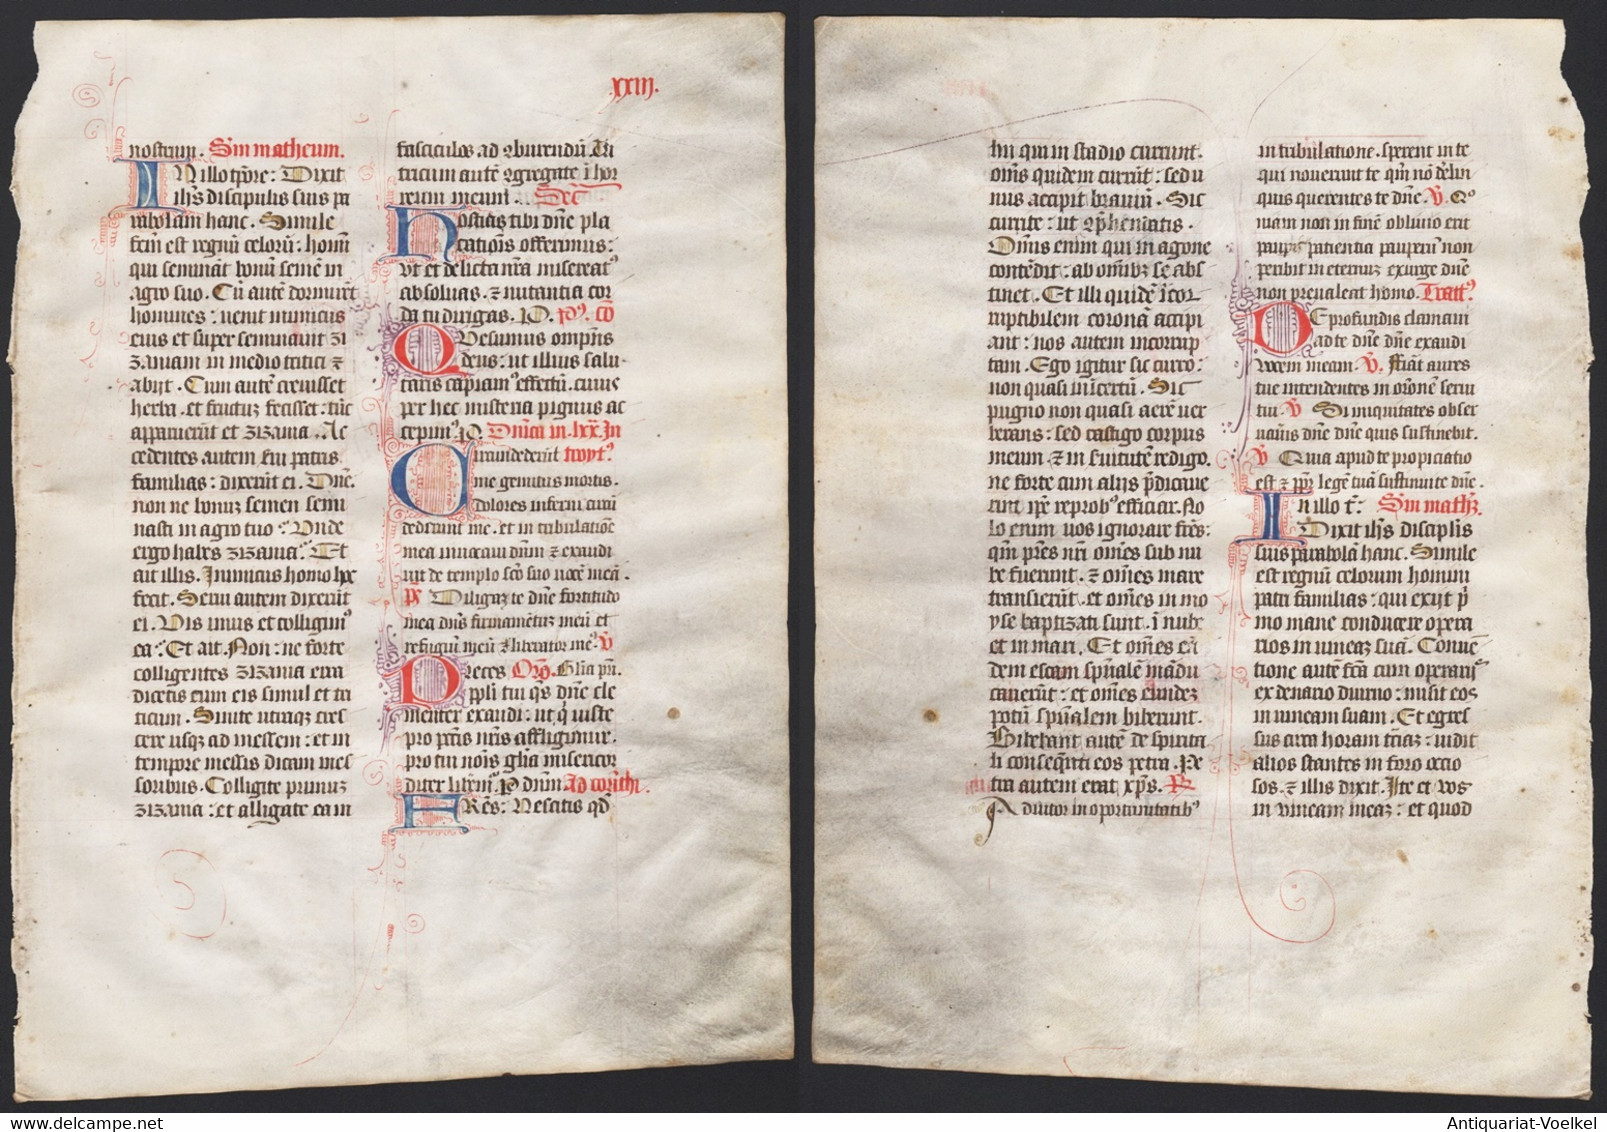 xxiij.
nostrum. Sm matheum.
IN illo tpore: Dixit
ihs discipulis suis pa
rabolam hanc. Simile
fcm est regnu celoru: homi
qui seminat bonu seme in
agro suo. Cu aute dormiret
homines: uenit inimicus
eius et super seminauit zi
zaniam in medio tritici ⁊
abijt. Cum aute creuisset
herba. et fructuz fecisset: tuc
apparuerut et zizania. Ac
cedentes autem serui patris
familias: dixerut ei. Dne.
non ne bonuz semen semi
nasti in agro tuo: Vnde
ergo habes zizania: Et
ait illis. Inimicus homo hec
fecit. Serui autem dixerut
ei. Vis imus et colligim9
ea: Et ait. Non: ne forte
colligentes zizania era
dicetis cum eis simul et tri
ticum. Sinite utraqz cres
cere usqz ad messem: et in
tempore messis dicam mes
soribus. Colligite primuz
zizania: et alligate ea in
fasciculos ad 9burendu. Tri
ticum aute 9gregate i hor
reum meum. Secr
Hostias tibi dne pla
cationis offerimus:
vt et delicta nra miserat9
absoluas. ⁊ nutantia cor
da tu dirigas. P. p9. co
Quesumus omnps
deus: ut illius salu
taris capiam9 effectu. cuius
per hec misteria pignus ac
cepim9. P. Dnica in .lxx. In
Circundederut troyt9.
me gemitus mortis.
dolores inferni circu
dederunt me. et in tribulatioe
mea inuocaui dnm ⁊ exaudi
uit de templo sco suo uoce mea.
ps Diligaz te dne fortitudo
mea dns firmametuz meu et
refugiu meu ⁊ liberator me9. V
Preces Oro. Glia pri.
ppli tui qs dne cle
menter exaudi: ut q iuste
pro pctis nris affligimur.
pro tui nois glia misericor
diter liberem9. P dnm. Ad corithi.
FRes: Nescitis qd
hii qui in stadio currunt.
oms quidem currut: sed u
nus accipit brauiu. Sic
currite: ut 9prehendatis.
Omnis enim qui in agone
contedit: ab omibz se abs
tinet. Et illi quide i cor
ruptibilem corona accipi
ant: nos autem incorrup
tam. Ego igitur sic curro:
non quasi in icertu. Sic
pugno non quasi aere ver
berans: sed castigo corpus
meum ⁊ in seruitute redigo.
ne forte cum alijs predicaue
rint ipe reprob9 efficiar. No
lo enim uos ignorare fres:
qm pres nri omes sub nu
be fuerunt. ⁊ omes mare
transierut. et omes in mo
yse baptizati sunt. i nube
et in mari. Et omes ea
dem escam spualem madu
cauerut: et omes eundez
potu spualem biberunt.
Bibebant aute de spirita
li consequeti eos petra. Pe
tra autem erat xps. R
Adiutor in oportunitatib9
in tribulatione. sperent in te
qui nouerunt te qm no delin
quis querentes te dne. V. Qo
niam non in fine obliuio erit
paupis patientia pauperu non
peribit in eternuz exurge dne
non preualeat homo. Tract9
De profundis clamaui
ad te dne dne exaudi
vocem meam. V. Fiat aures
tue intendentes in orone serui
tui. V Si iniquitates obser
uaueris dne dne quis sustinebit.
V Quia apud te propiciatio
est ⁊ pp lege tua sustinui te dne.
In illo t: Sm mathz.
Dixit ihs disciplis
suis parabola hanc. Simile
est regnu celorum homini
patri familias: qui exijt p
mo mane conducere opera
rios in uineaz sua. Conue
tione aute fca cum operarijs
ex denario diurno: misit eos
in uineam suam. Et egres
sus circa horam terciaz: uidit
alios stantes in foro ocio
sos. ⁊ illis dixit. Ite et uos
in vineam meaz: et quod
Antiquariat-Voelkel